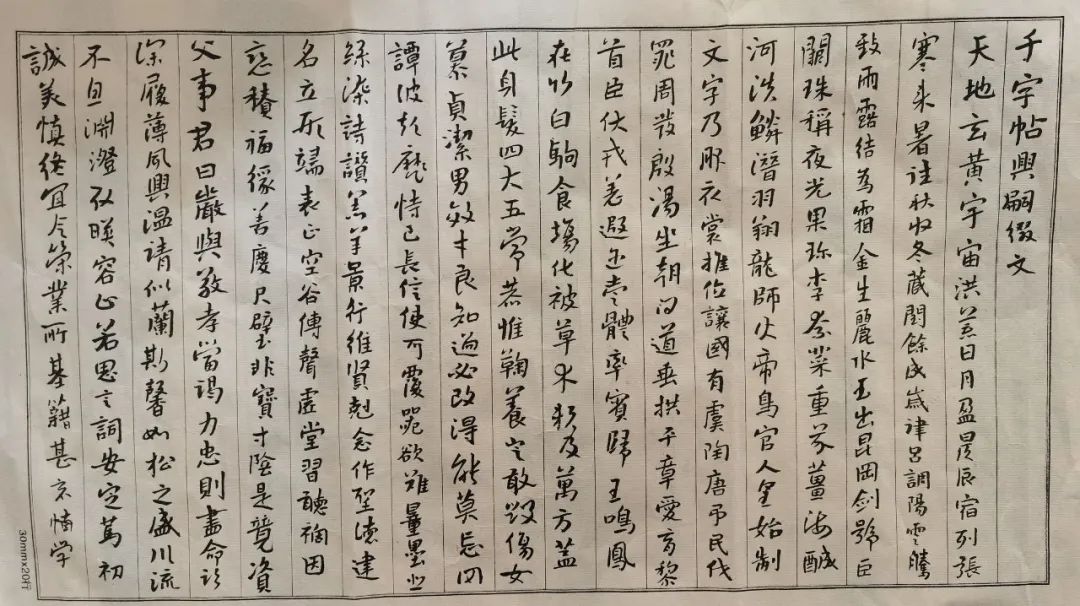 千字帖興嗣綴文
天地玄黃宇宙洪荒日月盈昃辰宿列張
寒来暑往秋收冬蔵閏餘成歲律吕調陽雲騰
致雨露结為霜金生麗水玉出昆岡剑號巨
闕珠稱夜光果珎李柰菜重芥薑海醎
河淡鱗潛羽翔龍師火帝鳥官人皇始制
文字乃服衣裳推位讓國有虞陶唐弔民伐
罪周發殷湯坐朝问道垂拱平章愛育黎
首臣伏戎羌遐迩壹體率賓歸王鳴鳳
在竹白駒食場化被草木賴及萬方蓋
此身髮四大五常恭惟鞠養豈敢毀傷女
慕貞潔男效才良知過必改得能莫忘罔
譚彼短靡恃己長信使可覆器欲難量墨悲
絲染詩讚羔羊景行維賢剋念作聖德建
名立形端表正空谷傳聲虛堂習聽禍因
惡積福缘善慶尺璧非寶寸陰是競資
父事君曰嚴與敬孝當竭力忠則盡命临
深履薄夙興溫清似蘭斯馨如松之盛川流
不息淵澄取暎容止若思言詞安定篤初
誠美慎终宜令榮業所基籍甚无竟学
30mmx20行